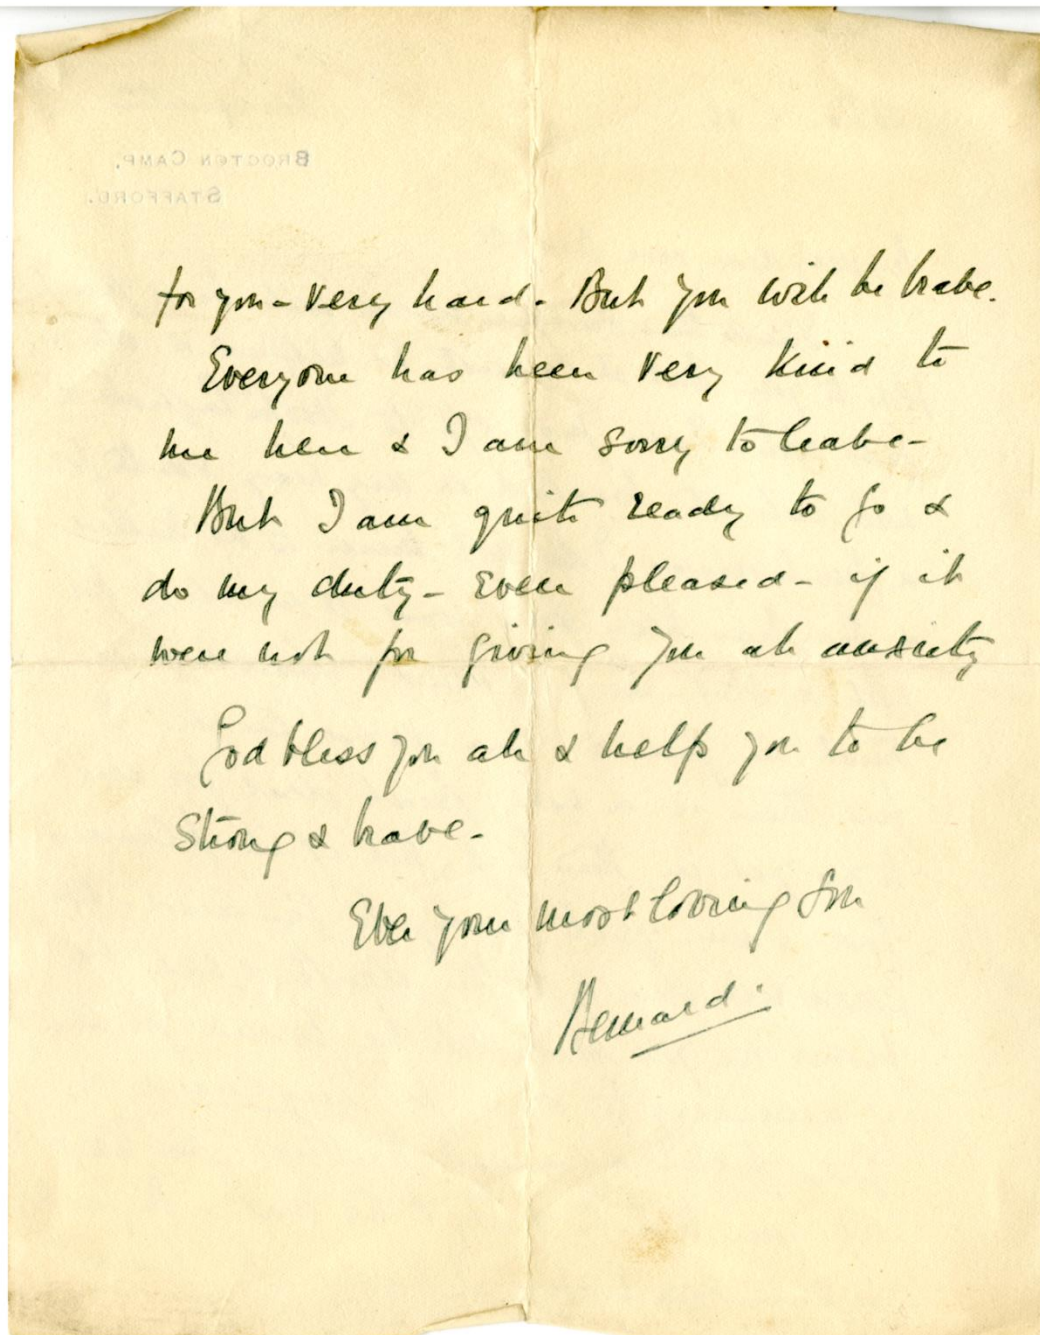 BROCTON CAMP,
STAFFORD.
for you - very hard. But you will be brave.
Everyone has been very kind to
me here & I am sorry to leave -
But I am quite ready to go &
do my duty - even pleased - if it
were not for giving you all anxiety
God bless you all & help you to be
strong & brave -
Ever your most loving son
Bernard.